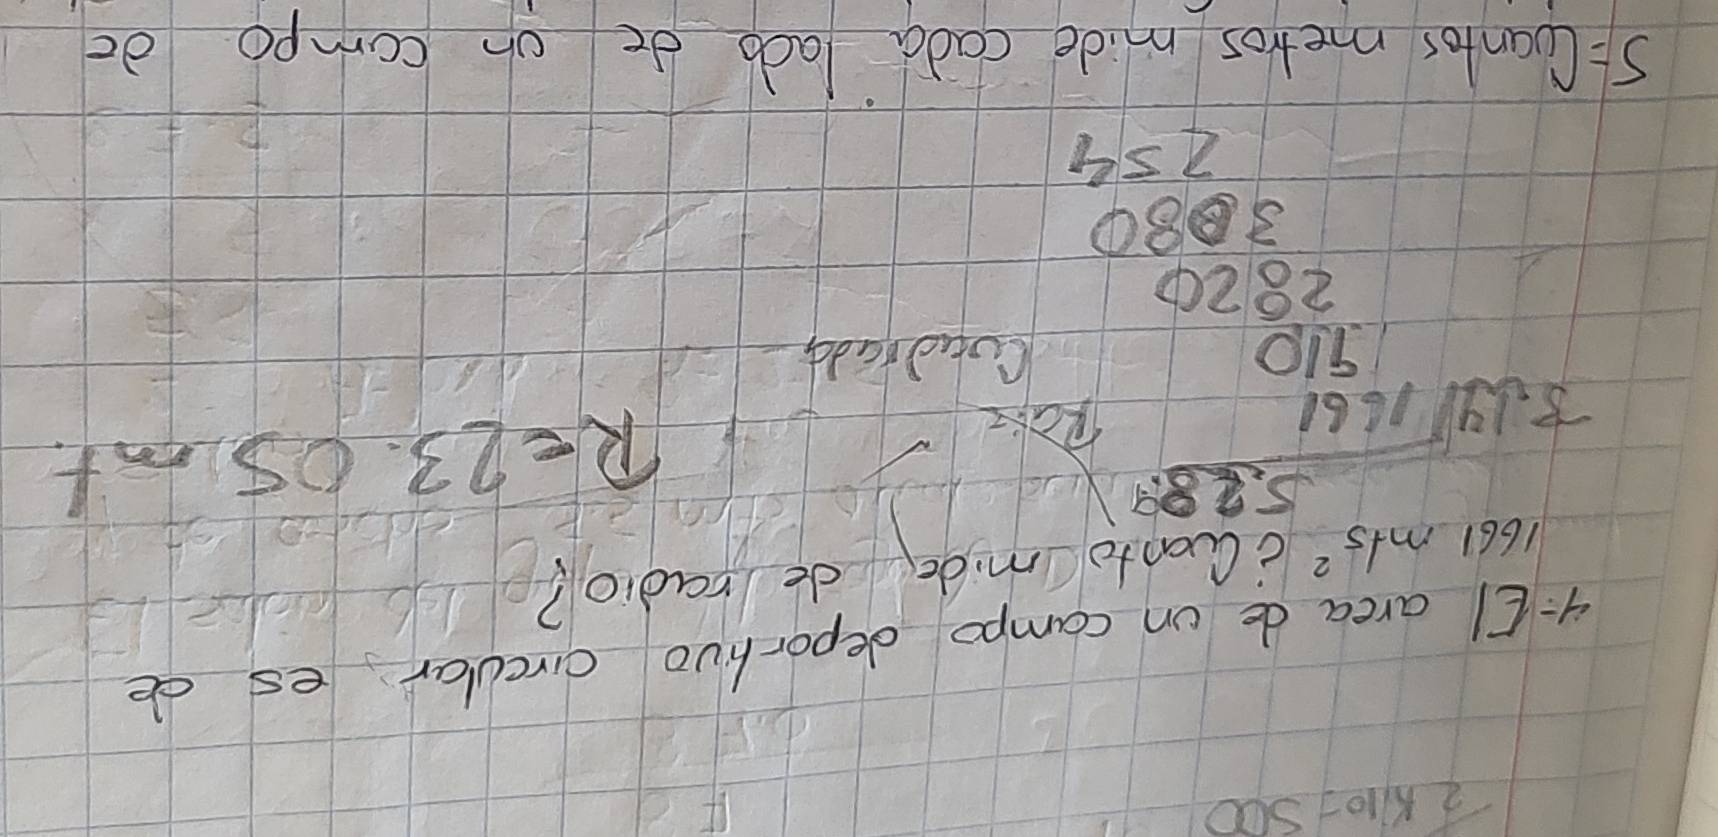 2 Kilo = 500
4= El area de un campo deportivo circular, es de
1661 mts² ¿Cuanto mide, de radio?
528.9
3.14 1661
910
2820
3080
254
Raiz
Cuadrada
R= 23.05 mt.
5= Cuantos metros mide cada lado de un campo de